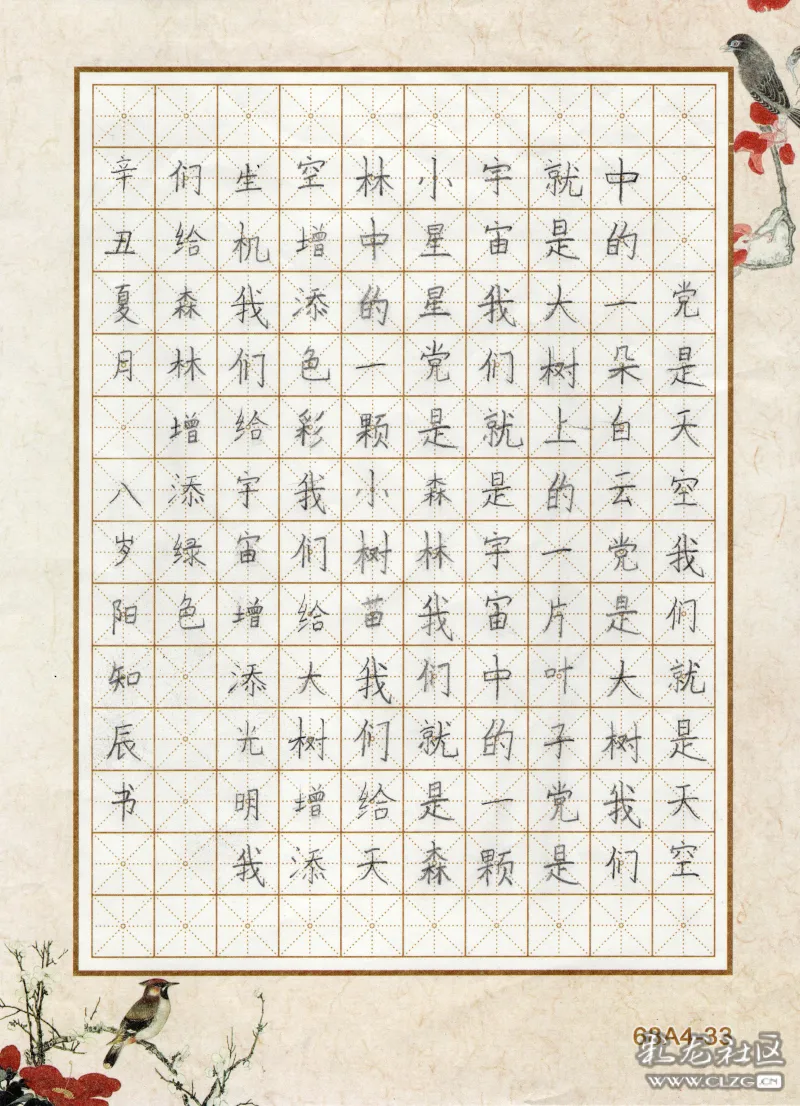 党是天空我们就是天空
中的一朵白云党是大树我们
就是大树上的一片叶子党是
宇宙我们就是宇宙中的一颗
小星星党是森林我们就是森
林中的一颗小树苗我们给天
空增添色彩我们给大树增添
生机我们给宇宙增添光明我
们给森林增添绿色
辛丑夏月 八岁阳知辰书
68A4-33
礼龙社区
WWW.CLZG.CN